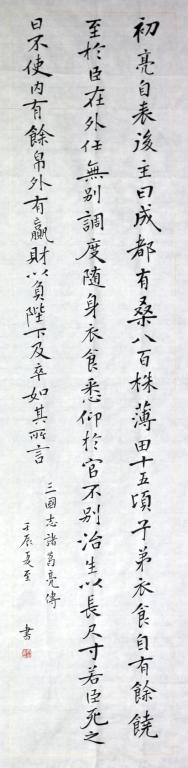 初亮自表後主曰成都有桑八百株薄田十五頃子弟衣食自有餘饒
至於臣在外任無別調度隨身衣食悉仰於官不別治生以長尺寸若臣死之
日不使內有餘帛外有贏財以負陛下及卒如其所言
三國志諸葛亮傳
壬辰夏至 書